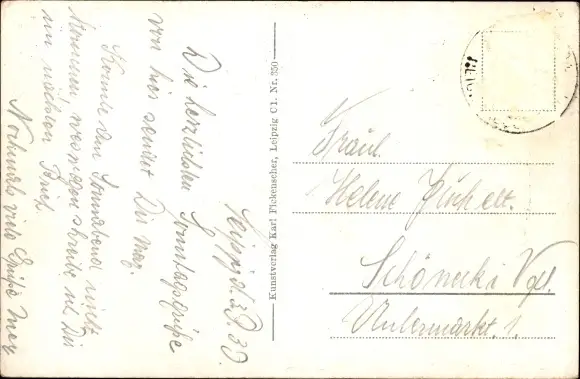 Leipzig d. 3.9.30.
Die herzlichsten Sonntagsgrüße
von hier sendet Dir Max.
Konnte den Sonnabend nicht
kommen, weswegen schreibe ich Dir
im nächsten Brief.
Nochmals viele Grüße Max
Kunstverlag Karl Fickenscher, Leipzig C1. Nr. 350
Fräul.
Helene
Schöneck i. Vgtl.
Untermarkt. 1.